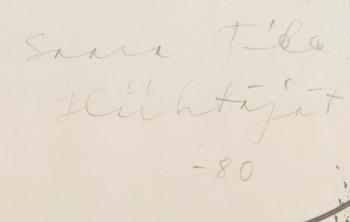 Saara Tiko
Hiihtäjät
-80